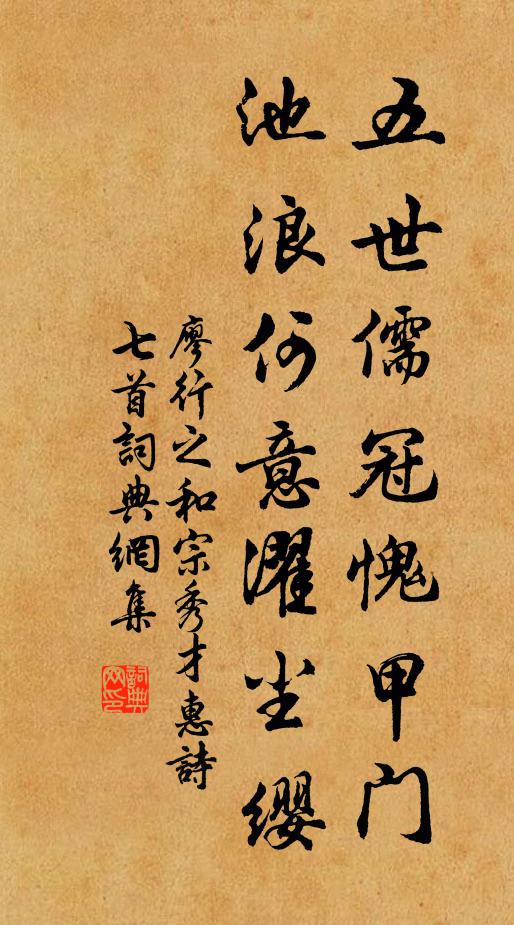 五世儒冠愧甲门
池浪何意濯尘缨
廖行之和宗秀才惠詩
七首詞典網集
詞典网印